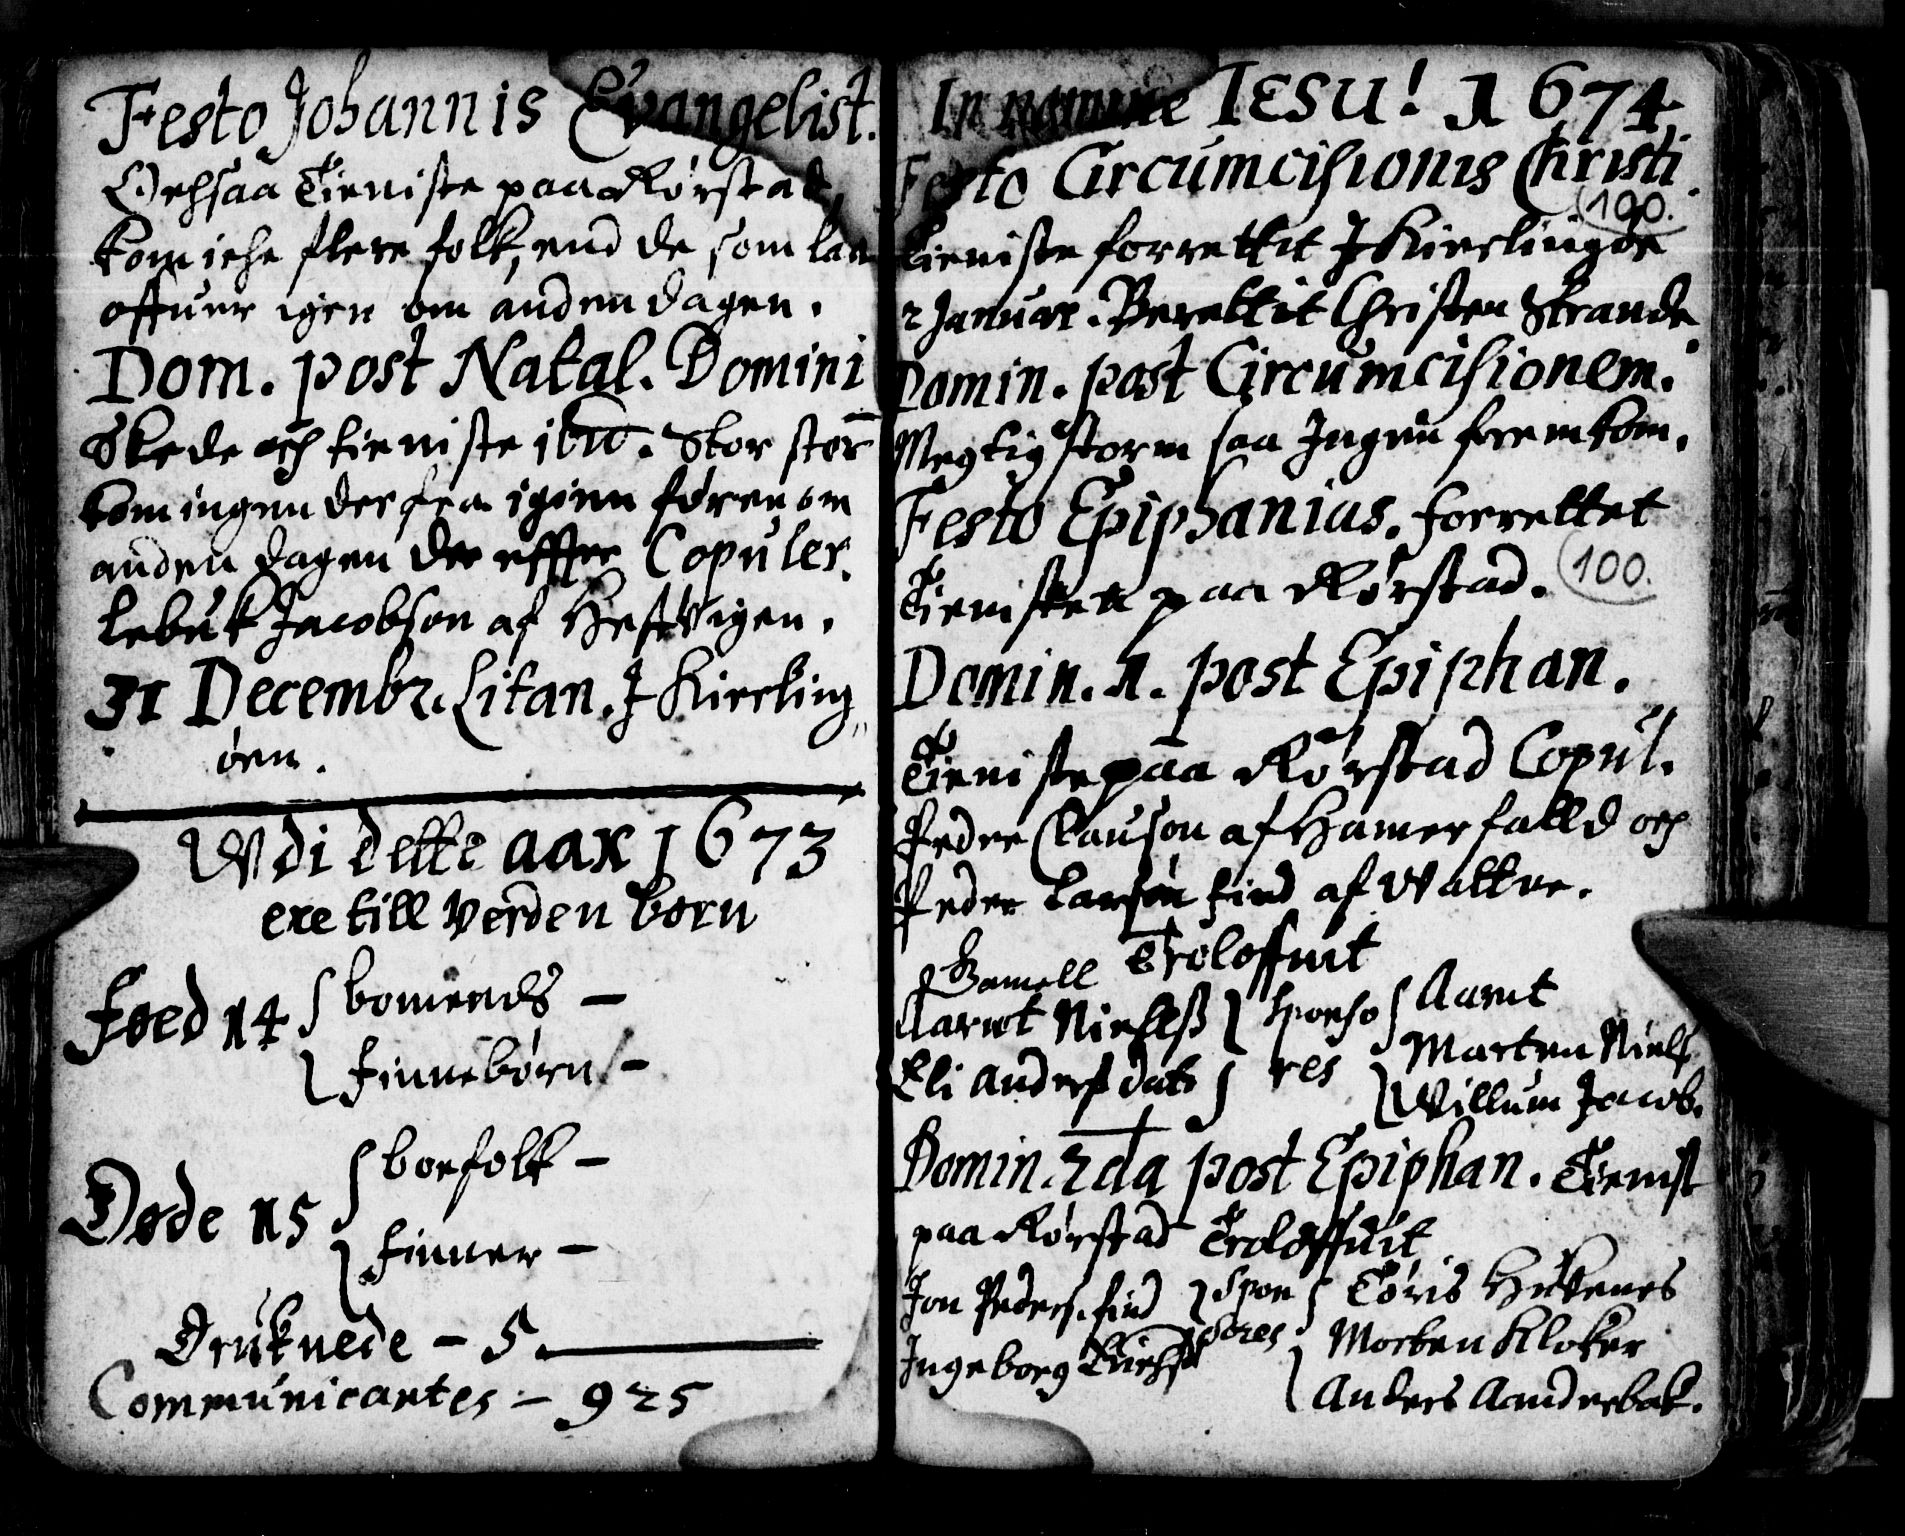 Festo Johannis Evangelist.
Ochsaa Tieniste paa Rørstad,
kom iche flere folk, end de som laa
offuer igen om anden dagen.
Dom. post Natal. Domini
Skede och tieniste ibid. Stor storm
kom ingen der fra igien føren om
anden dagen der effter Copuler.
Lebuk Jacobson af Hestvigen.
31 Decembr. Litan. J Kierling
øen.
Wdi dette aar 1673
ere till Verden born
Føed 14 { bomends –
{ finnebørn –
Døde 15 { boefolk –
{ finner –
Druknede – 5.
Communicantes – 925
In nomine IESU! 1674.
Festo Circumcisionis Christi.
100.
Tieniste forrettit J Kierlingøe
2 Januar. Berettit Christen Strande
Domin. post Circumcisionem.
Megtig storm saa Ingen frem kom.
Festo Epiphanias. forrettet
Tienisten paa Rørstad.
100.
Domin. 1. post Epiphan.
Tieniste paa Rørstad Copul.
Peder Clauson af Hamerfalld och
Peder Larsøn find af Valkue.
Troloffuit
Gamell
Aarnt Nielsß } sponso { Aarnt
Marten Niels.
Eli Anders dat. } res { Willum Jacob.
Domin. 2da post Epiphan. Tienist
paa Rørstad Troloffuit
Jon Peders. find } Spon { Tøris
Ingeborg } sores { Morten Kloker
Anders Aanderbak.